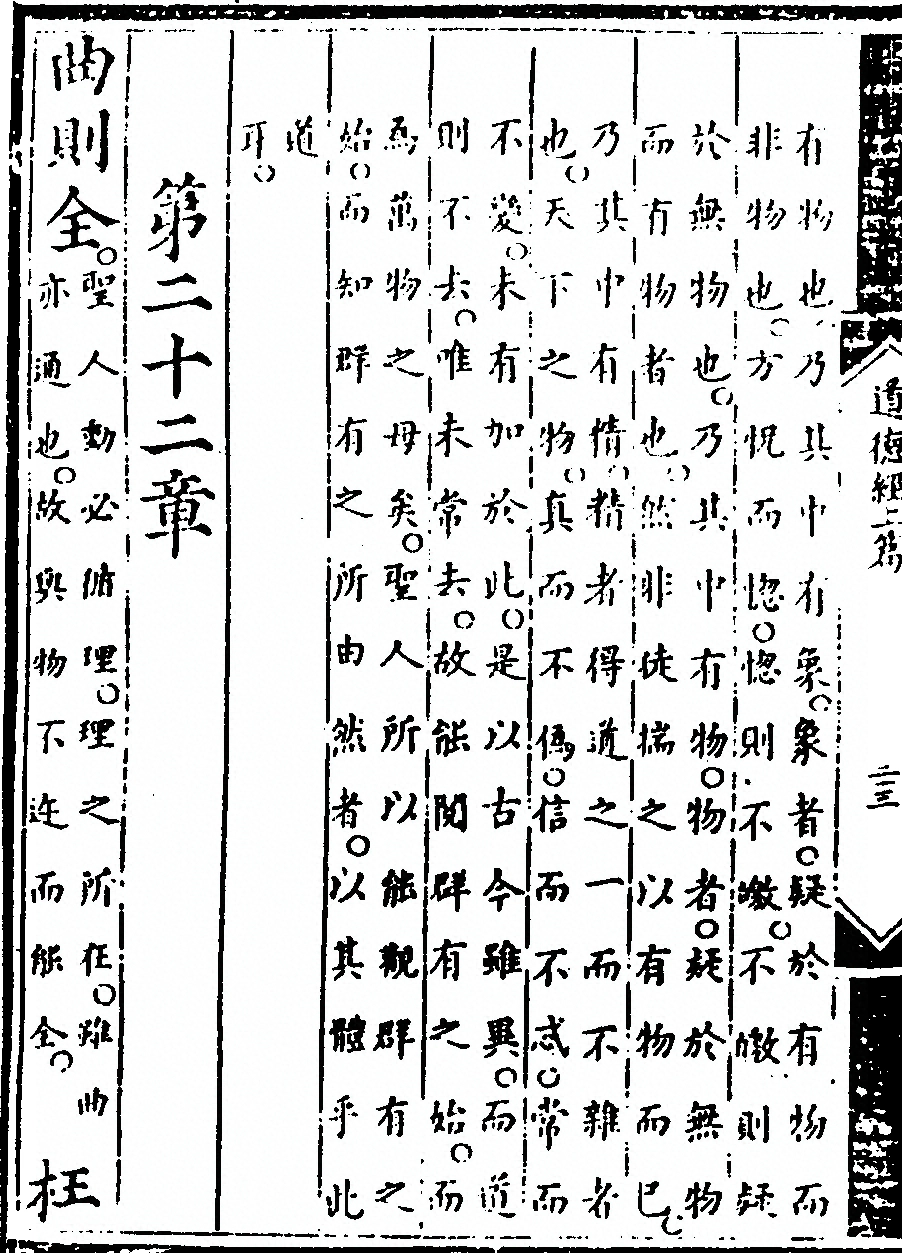 道德經上篇
二三
有物也乃其中有象。象者。疑於有物而
非物也。方怳而惚。惚則不皦。不皦則疑
於無物也。乃其中有物。物者。疑於無物
而有物者也。然非徒揣之以有物而已
乃其中有情。精者得道之一而不雜者
也。天下之物。真而不偽。信而不忒。常而
不變。未有加於此。是以古今雖異。而道
則不去。唯未常去。故能閱群有之始。而
為萬物之母矣。聖人所以能觀群有之
始。而知群有之所由然者。以其體乎此
道
耳。
第二十二章
曲則全。
聖人動必循理。理之所在。雖曲
亦通也。故與物不迕而能全。
枉